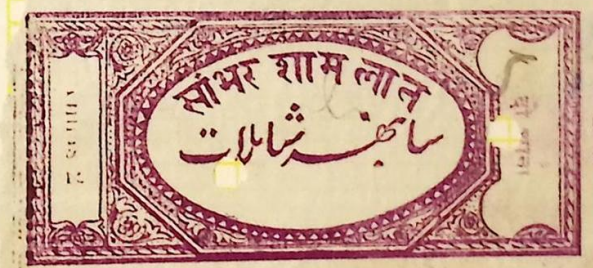 सांभर शामलात
سانبھر شاملات